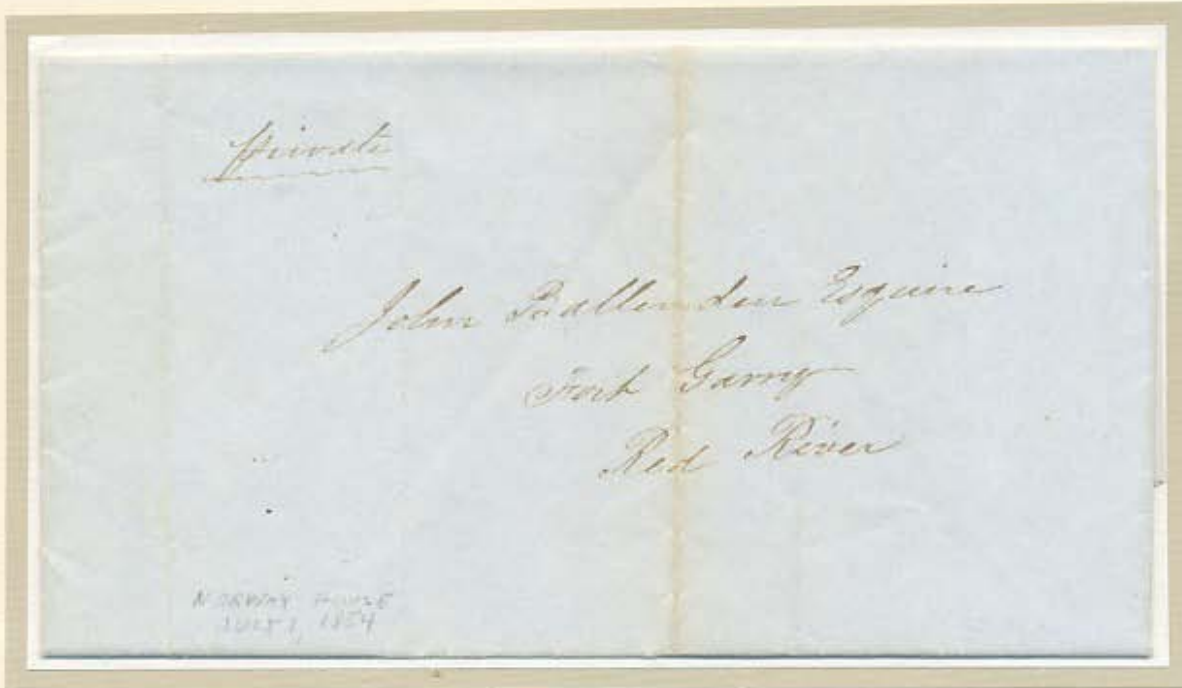 Private
John Ballenden Esquire
Fort Garry
Red River
NORWAY HOUSE
JULY 1, 1854